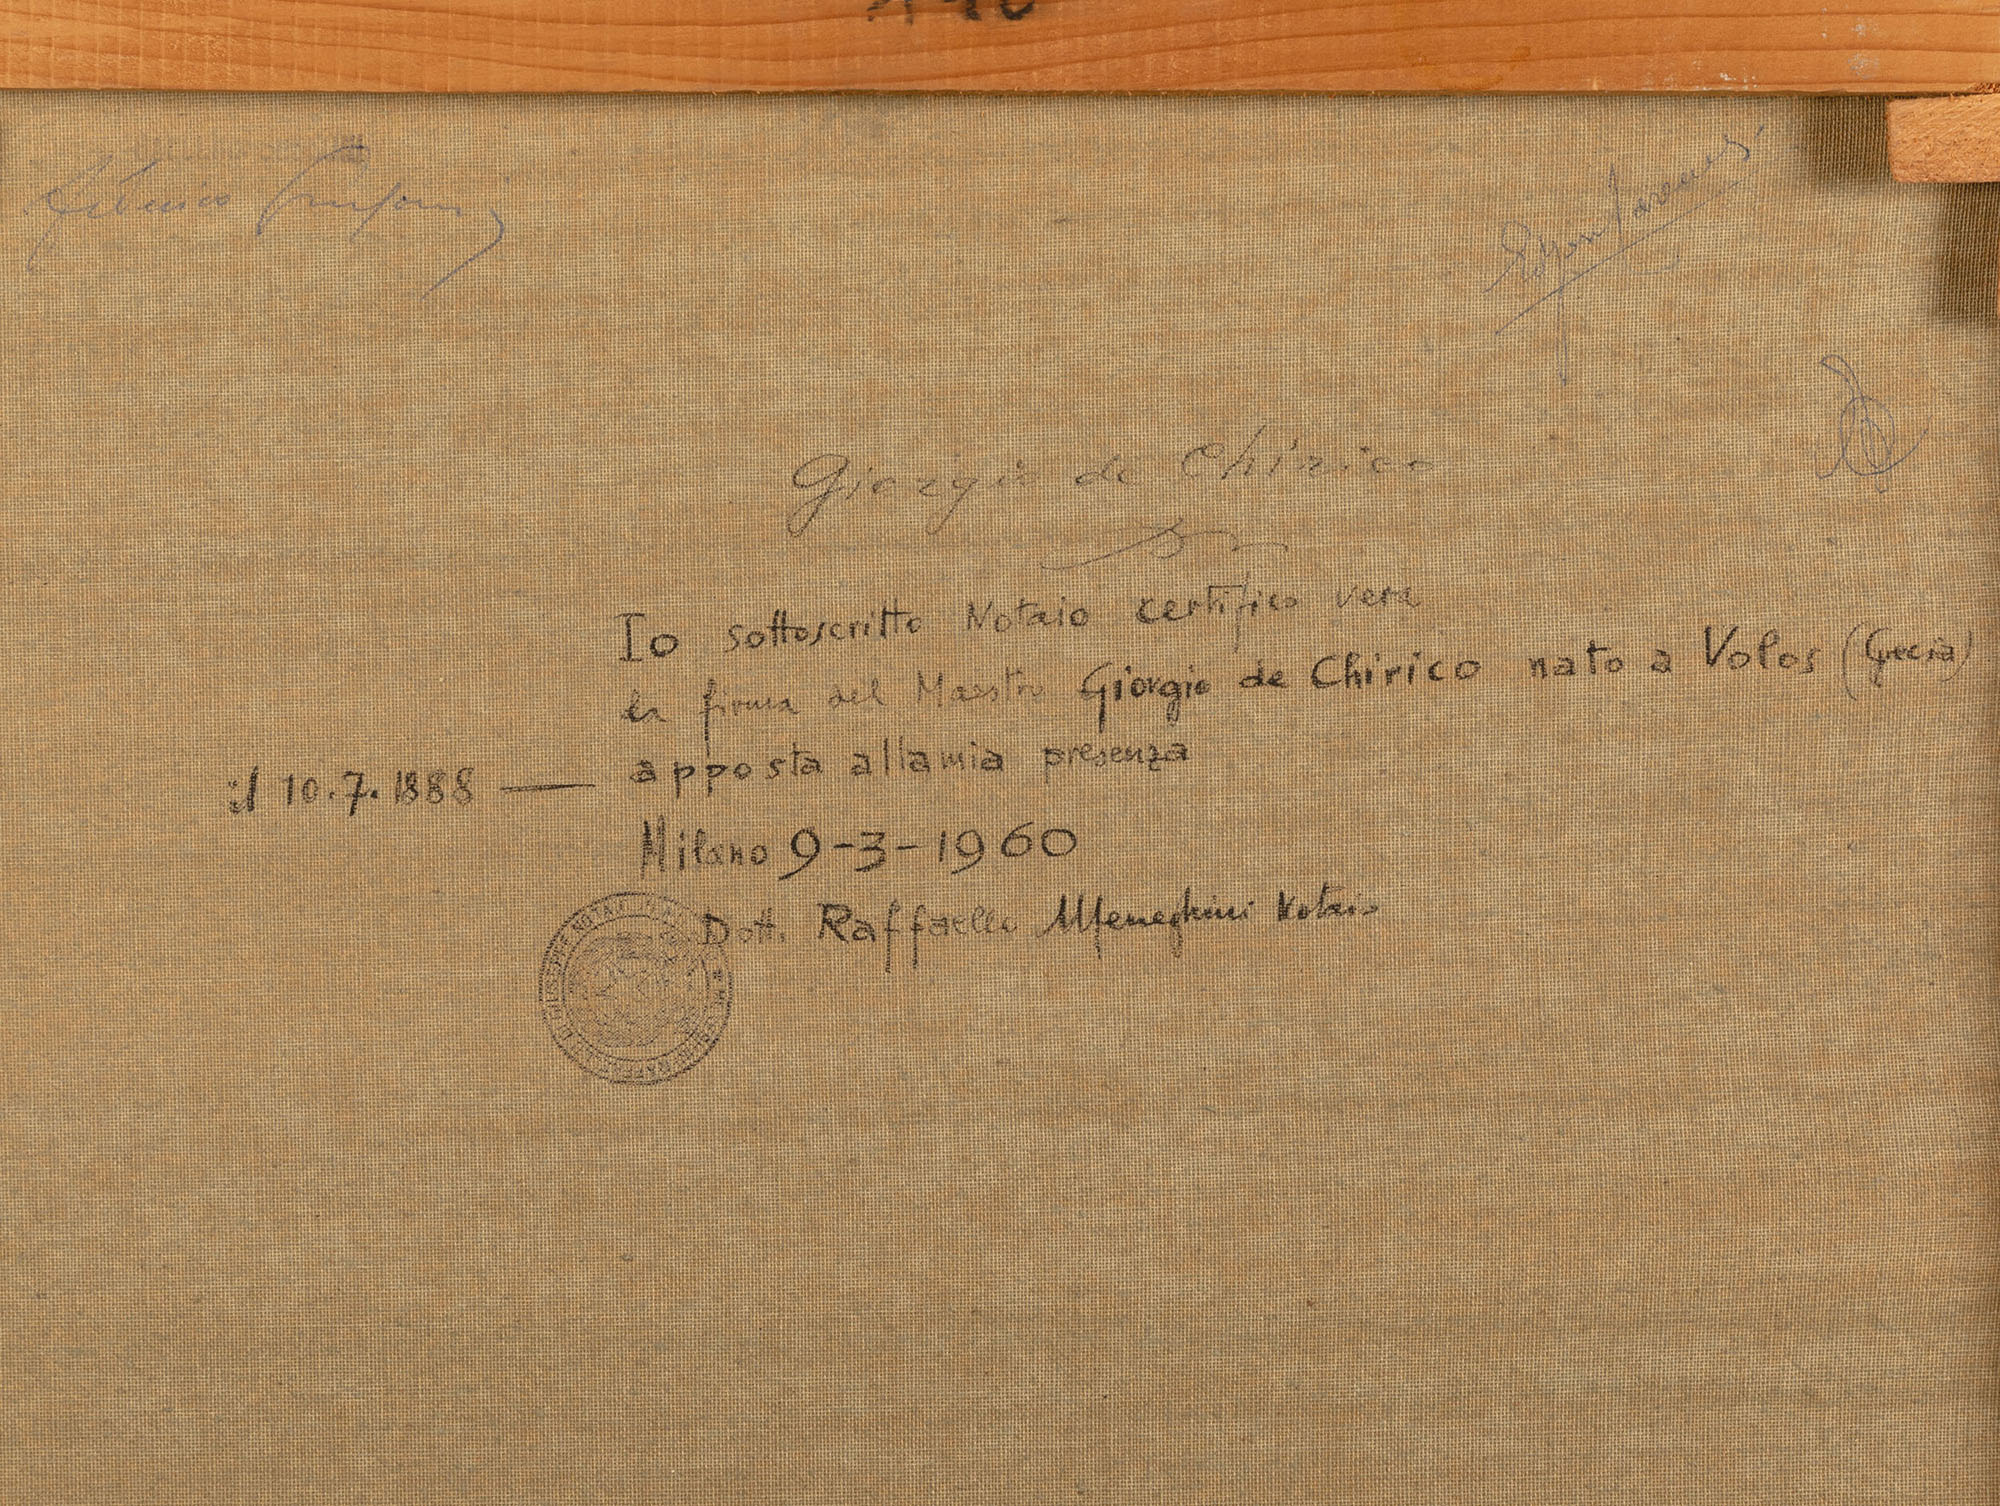 Giorgio de Chirico
Io sottoscritto Notaio certifico vera
la firma del Maestro Giorgio de Chirico nato a Volos (Grecia)
il 10.7.1888 — apposta alla mia presenza
Milano 9-3-1960
Dott. Raffaello Meneghini Notaio